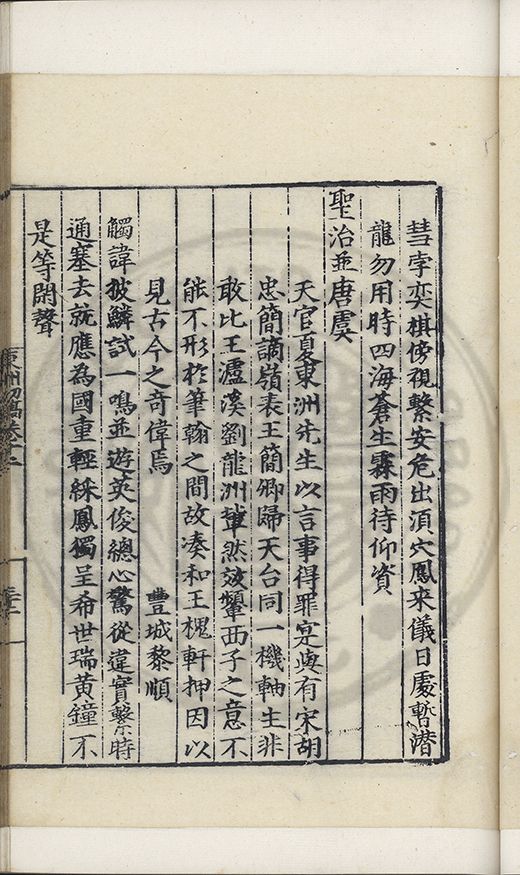 彗孛奕棋傍視繫安危出湏穴鳳来儀日處暫潛
龍勿用時四海蒼生霖雨待仰資
聖治並唐虞
天官夏東洲先生以言事得罪寔與有宋胡
忠簡謫嶺表王簡卿歸天台同一機軸生非
敢比王瀘溪劉龍洲輩然效顰西子之意不
能不形於筆翰之間故湊和王槐軒押因以
見古今之奇偉焉 豐城黎順
觸諱披鱗試一鳴並遊英俊總心驚從違實繫時
通塞去就應為國重輕綵鳳獨呈希世瑞黃鐘不
是等閑聲
東洲初稿卷十二